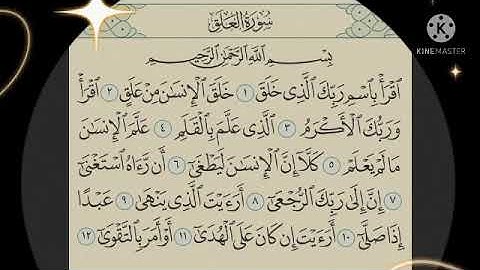 سُورَةُ العَلَقِ
KINEMASTER
بِسْمِ اللَّهِ الرَّحْمَٰنِ الرَّحِيمِ
ٱقْرَأْ بِٱسْمِ رَبِّكَ ٱلَّذِى خَلَقَ ١ خَلَقَ ٱلْإِنسَٰنَ مِنْ عَلَقٍ ٢ ٱقْرَأْ
وَرَبُّكَ ٱلْأَكْرَمُ ٣ ٱلَّذِى عَلَّمَ بِٱلْقَلَمِ ٤ عَلَّمَ ٱلْإِنسَٰنَ
مَا لَمْ يَعْلَمْ ٥ كَلَّآ إِنَّ ٱلْإِنسَٰنَ لَيَطْغَىٰٓ ٦ أَن رَّءَاهُ ٱسْتَغْنَىٰٓ
٧ إِنَّ إِلَىٰ رَبِّكَ ٱلرُّجْعَىٰٓ ٨ أَرَءَيْتَ ٱلَّذِى يَنْهَىٰ ٩ عَبْدًا
إِذَا صَلَّىٰٓ ١٠ أَرَءَيْتَ إِن كَانَ عَلَى ٱلْهُدَىٰٓ ١١ أَوْ أَمَرَ بِٱلتَّقْوَىٰٓ ١٢